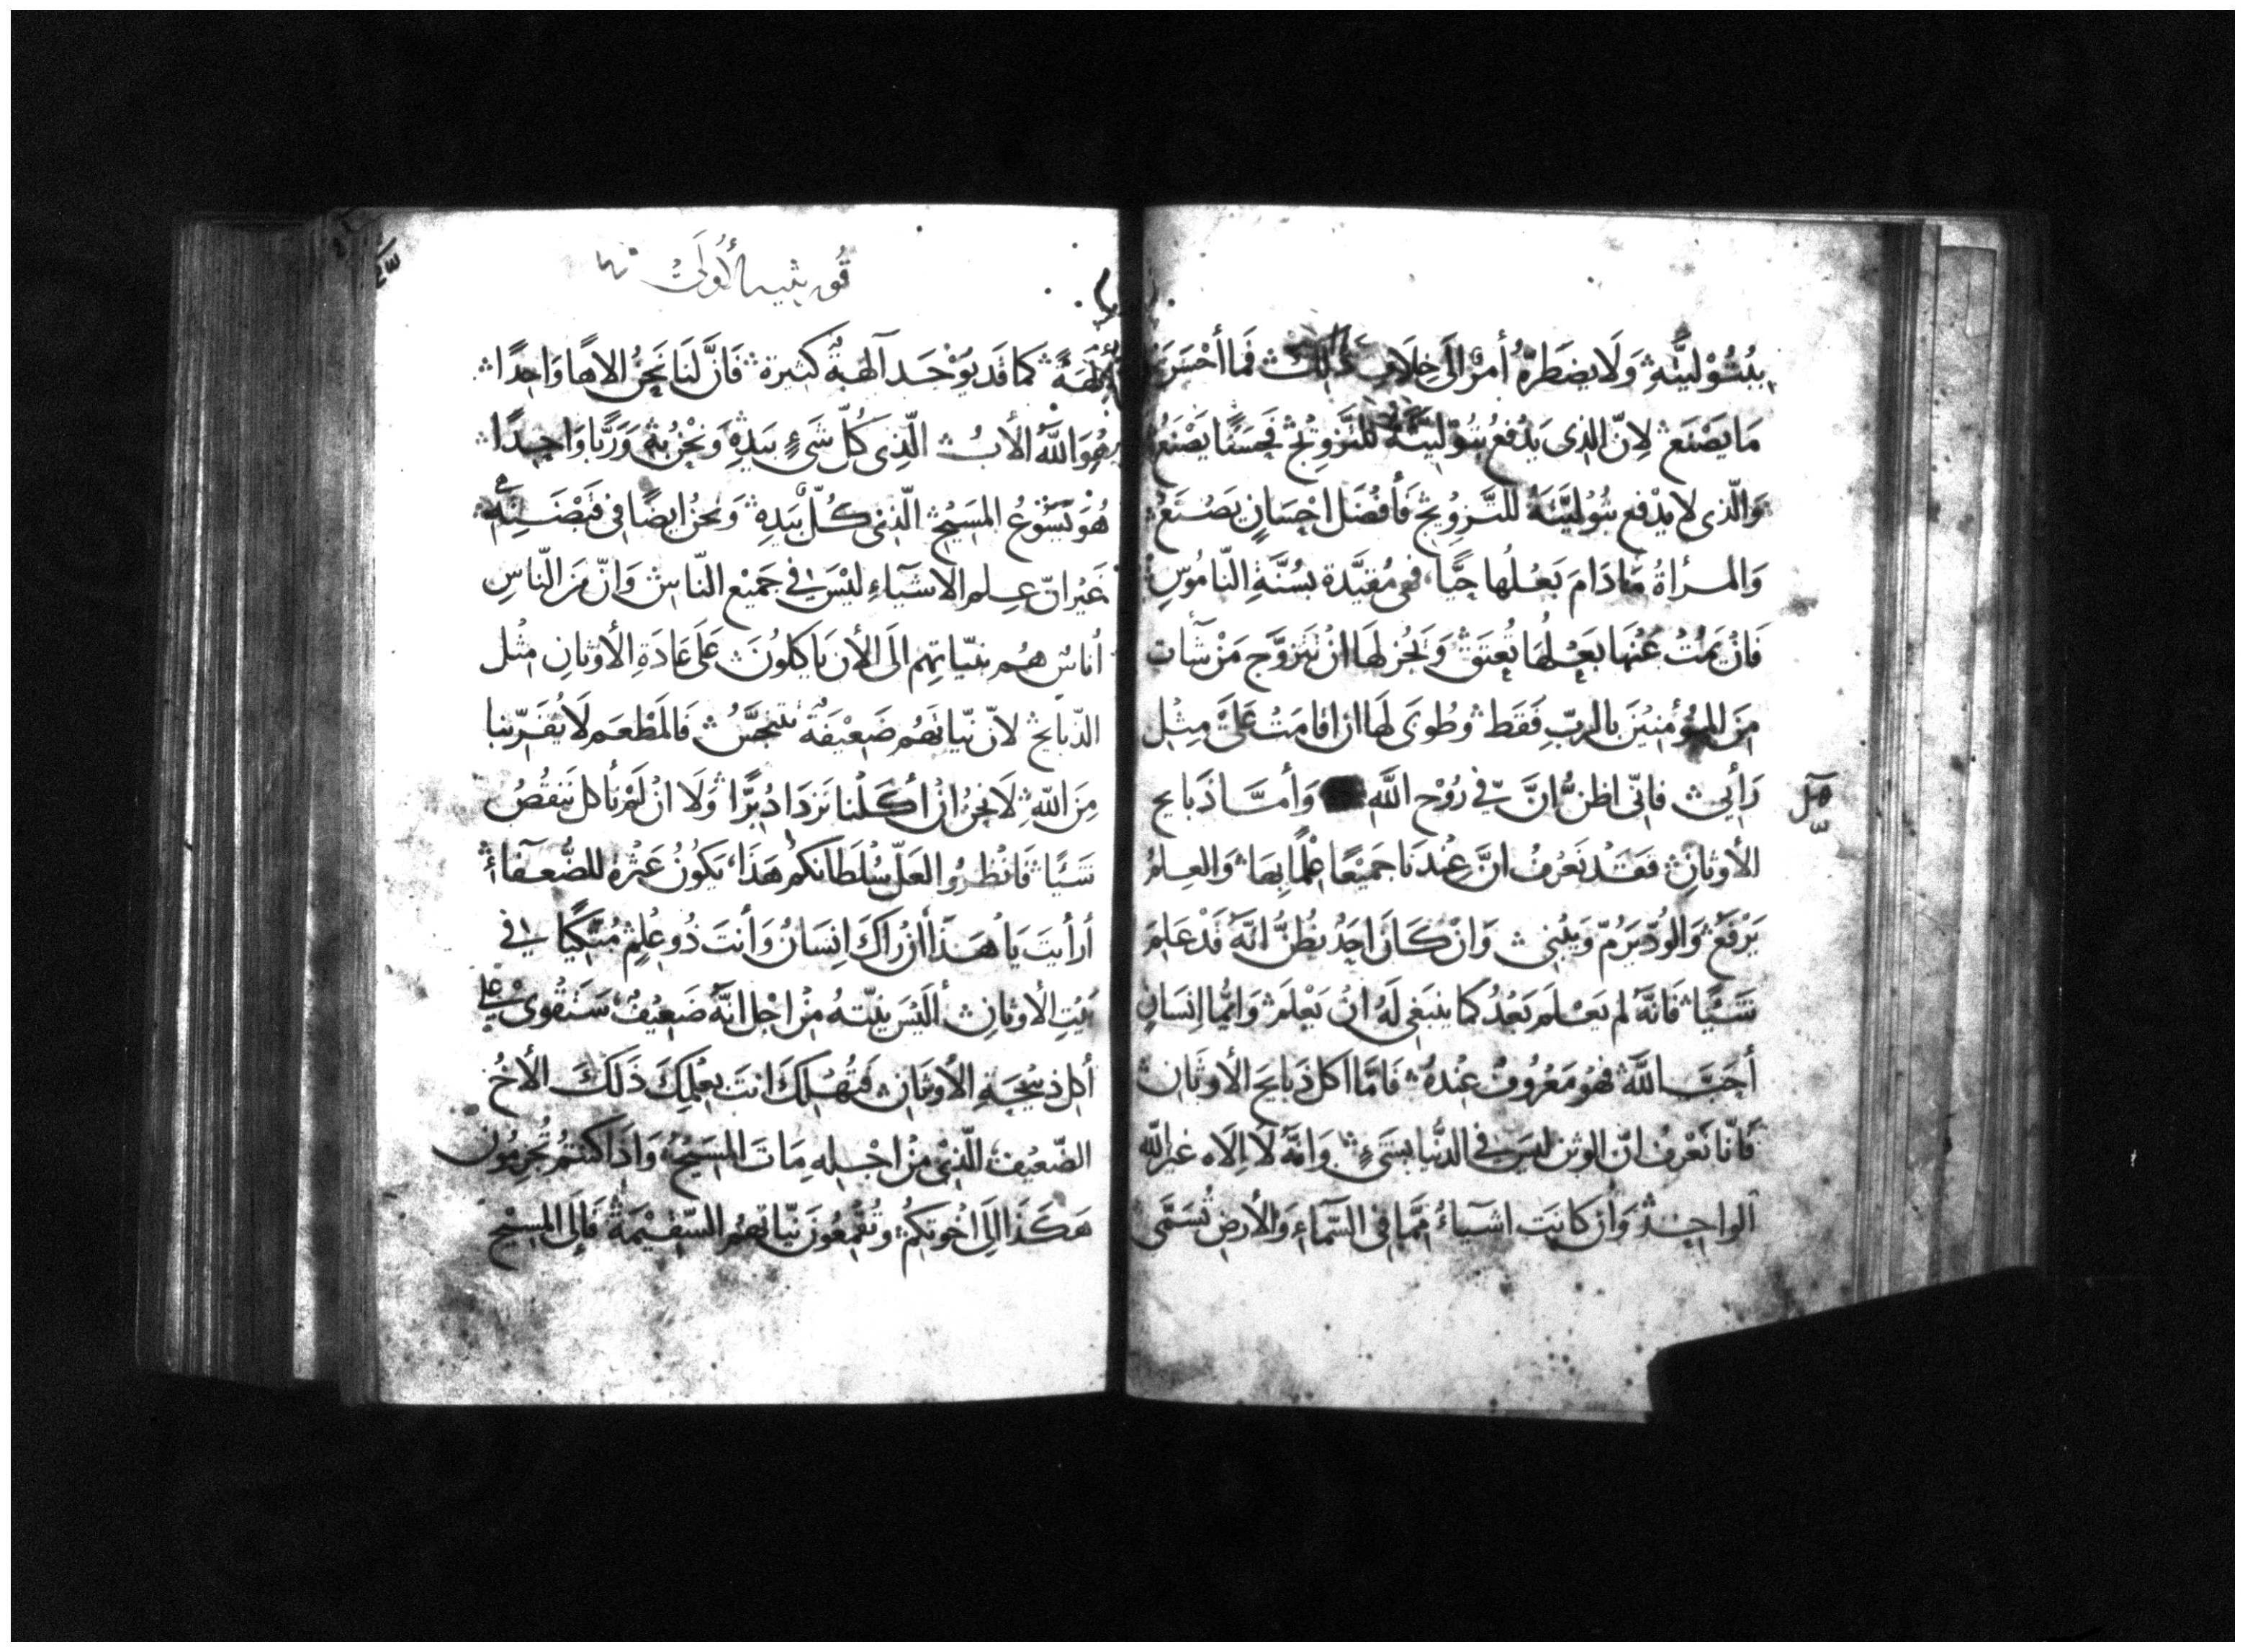 ببتوليته ولا يضطره أمر الى خلاف ذلك فما أحسن
ما يصنع لان الذى يدفع بتوليته للتزويج فحسنا يصنع
والذى لا يدفع بتوليته للتزويج فأفضل احسان يصنع
والمرأة ما دام بعلها حيا فهى مقيدة بسنة الناموس
فان يمت عنها بعلها تعتق ويجز لها ان تتزوج من شآت
من المؤمنين بالرب فقط وطوبى لها ان اقامت على مثل
رأيى فانى اظن ان فىّ روح الله وأما ذبايح
الأوثان فقد نعرف ان عندنا جميعا علما بها والعلم
يرفع والود يرم ويبنى وان كان احد يظن انه قد علم
شيئا فانه لم يعلم بعد كما ينبغى له ان يعلم وايما انسان
أحب الله فهو معروف عنده فاما اكل ذبايح الأوثان
فانا نعرف ان الوثن ليس فى الدنيا بشىء وانه لا الاه غير الله
الواحد وان كانت اشيآء مما فى السمآء والأرض تسمى
قورنثيه الأولى
آلهة كما قد يوجد آلهة كثيرة فان لنا نحن الاها واحدا
هو الله الأب الذى كل شىء بيده ونحن به وربا واحدا
هو يسوع المسيح الذى كل بيده ونحن ايضا فى قبضته
غير ان علم الاشيآء ليس فى جميع الناس وان من الناس
أناس هم بنياتهم الى الأن ياكلون على عادة الأوثان مثل
الذبايح لان نياتهم ضعيفة تتنجس فالمطعم لا يقربنا
من الله لا نحن ان أكلنا نزداد برا ولا ان لم نأكل ننقص
شيئا فانظروا لعل سلطانكم هذا يكون عثرة للضعفآء
أرأيت يا هذا أن راك انسان وأنت ذو علم متكيا فى
بيت الأوثان أليس نيته من اجل انه ضعيف ستقوى على
أكل ذبيحة الأوثان فتهلك انت بعلمك ذلك الأخ
الضعيف الذى من اجله مات المسيح واذا كنتم تجرمون
هكذا الى اخوتكم وتقمعون نياتهم السقيمة فإلى المسيح